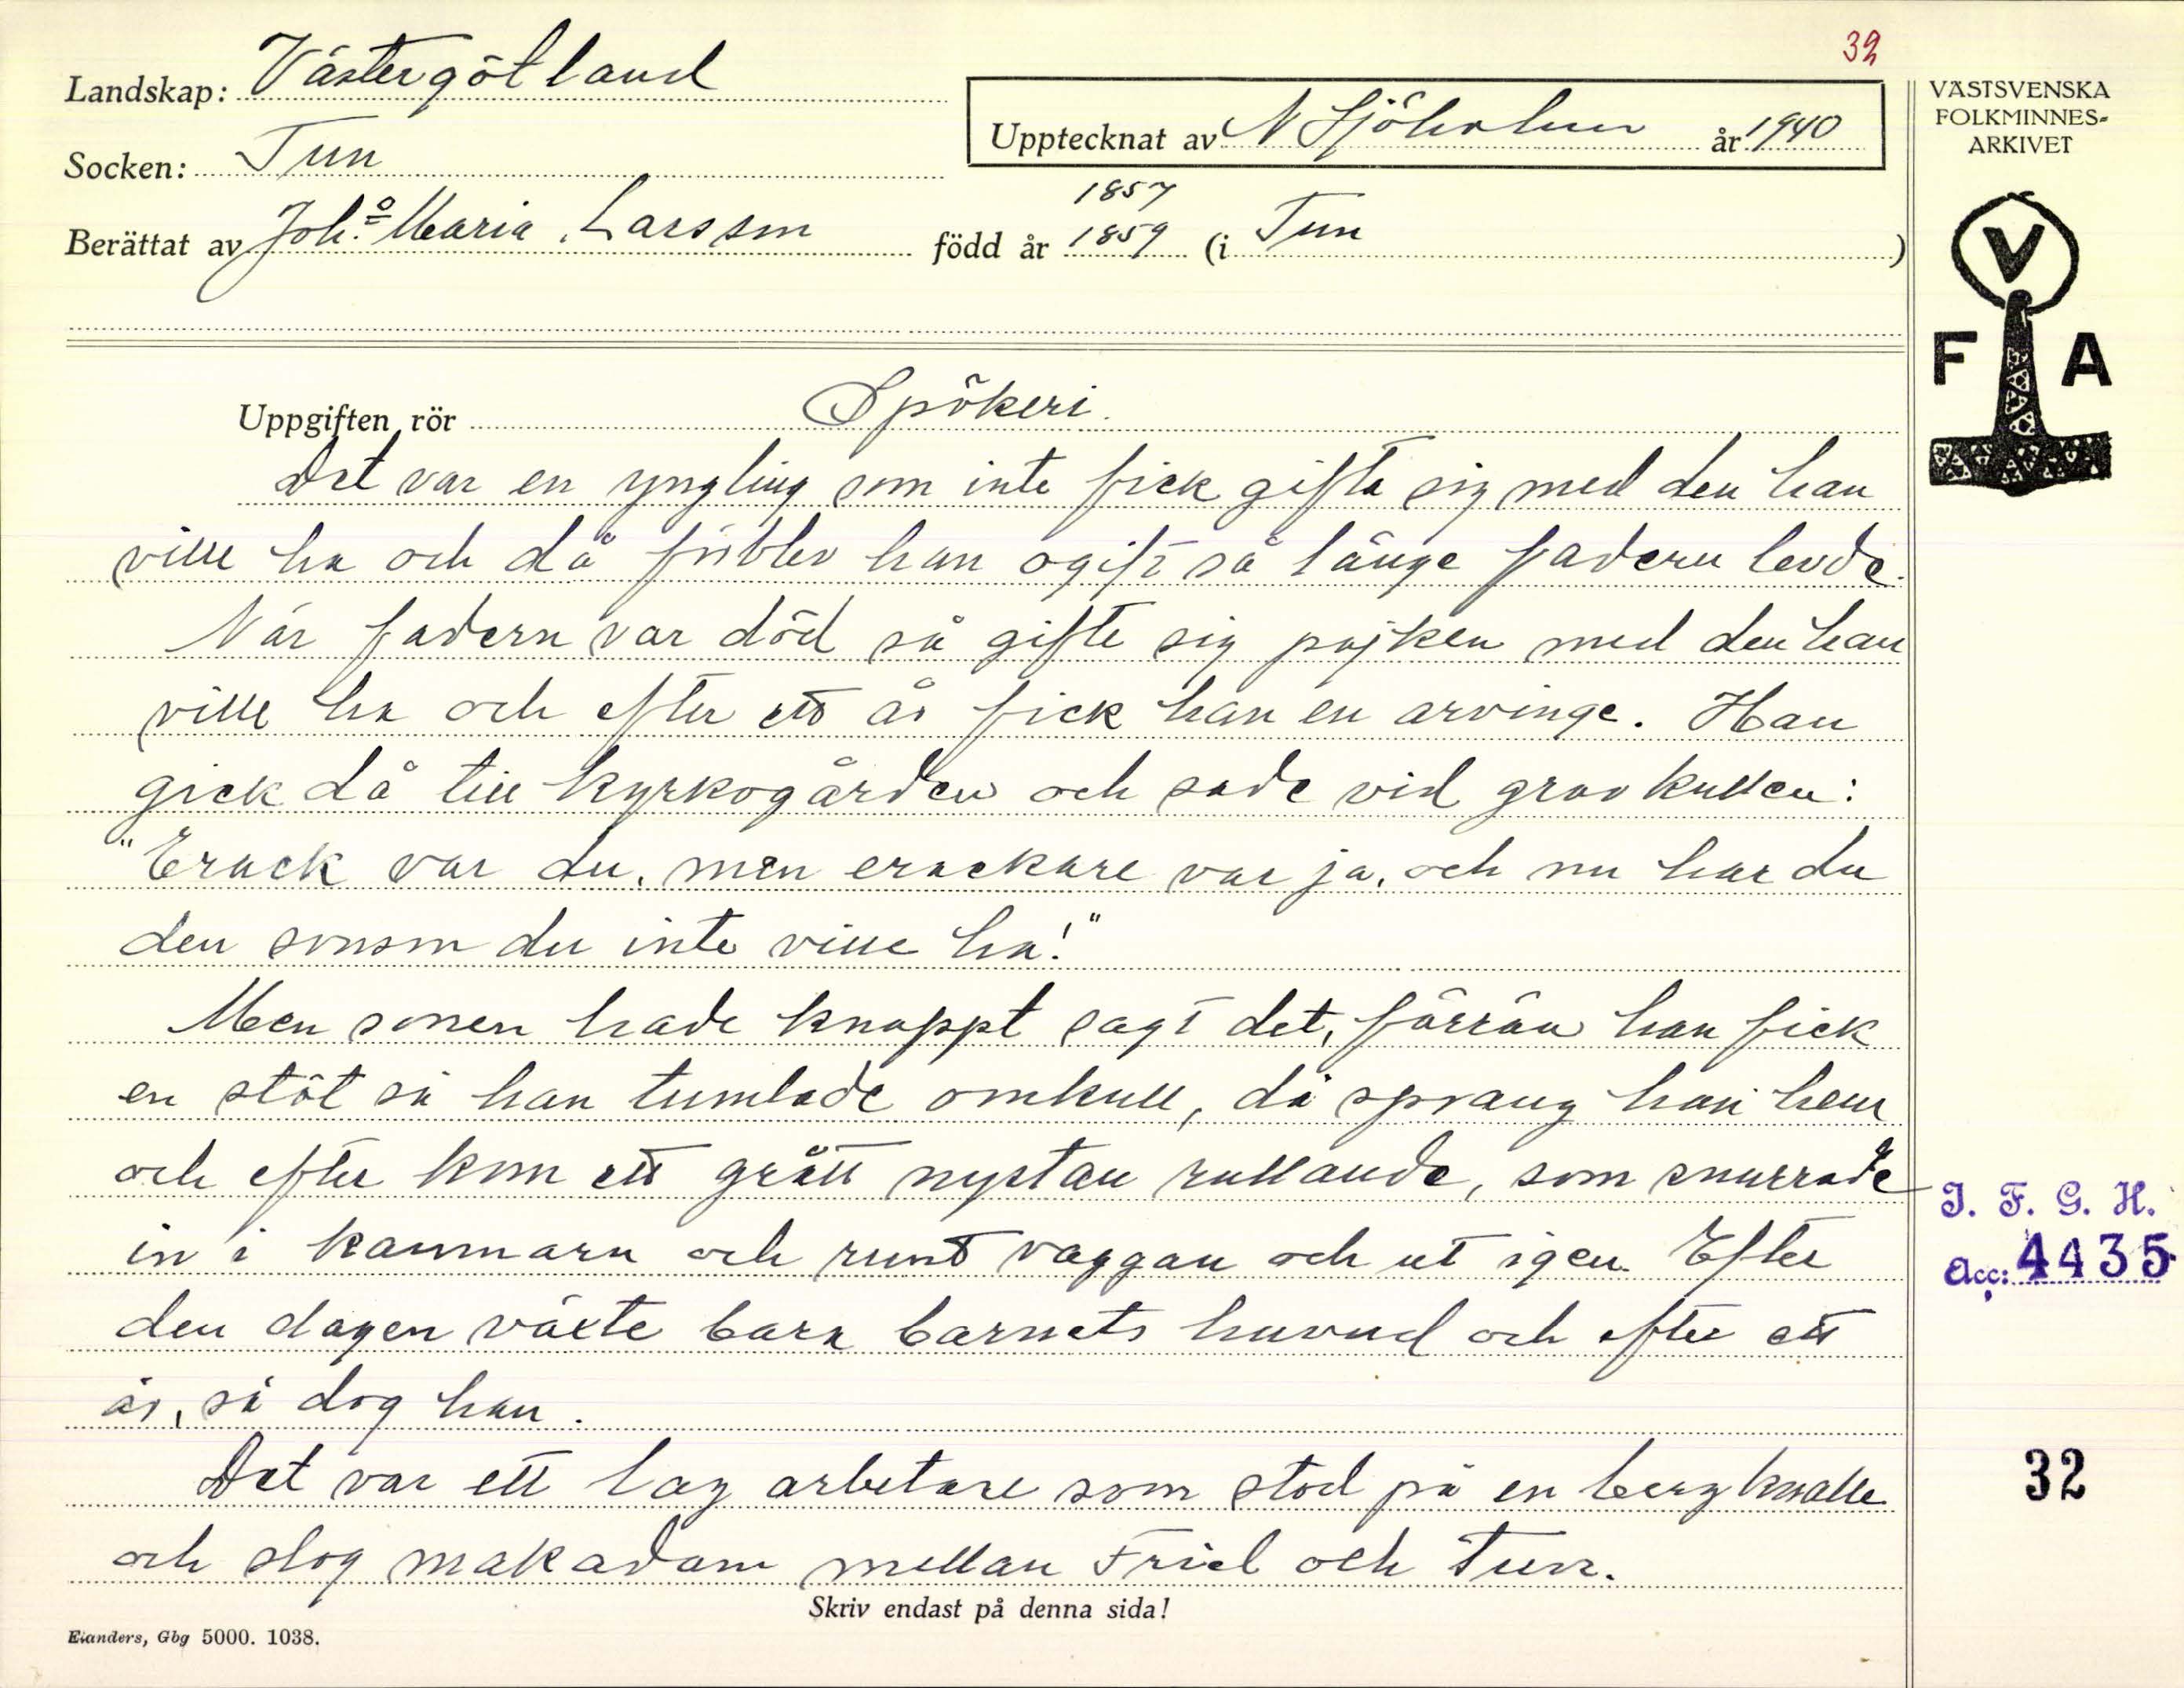 32
Landskap: Västergötland
Upptecknat av N Sjöholm år 1940
VÄSTSVENSKA
FOLKMINNES-
ARKIVET
Socken: Tun
1857
Berättat av Joh. o Maria Larsson född år 1859 (i Tun )
V
F A
Uppgiften rör Spökeri.
Det var en yngling som inte fick gifta sig med den han
ville ha och då förblev han ogift så länge fadern levde.
När fadern var död så gifte sig pojken med den han
ville ha och efter ett år fick han en arvinge. Han
gick då till kyrkogården och sade vid gravkullen:
"Erack var du, men erackare var ja, och nu har du
den sonson du inte ville ha!"
Men sonen hade knappt sagt det, förrän han fick
en stöt så han tumlade omkull, då sprang han hem
och efter kom ett grått nystan rullande, som snurrade
in i kammarn och runt vaggan och ut igen. Efter
den dagen växte bara barnets huvud och efter ett
år, så dog han.
Det var ett lag arbetare som stod på en bergknalle
och slog makadam mellan Friel och Tun.
Skriv endast på denna sida!
Elanders, Gbg 5000. 1038.
I. F. G. H.
Acc: 4435
32